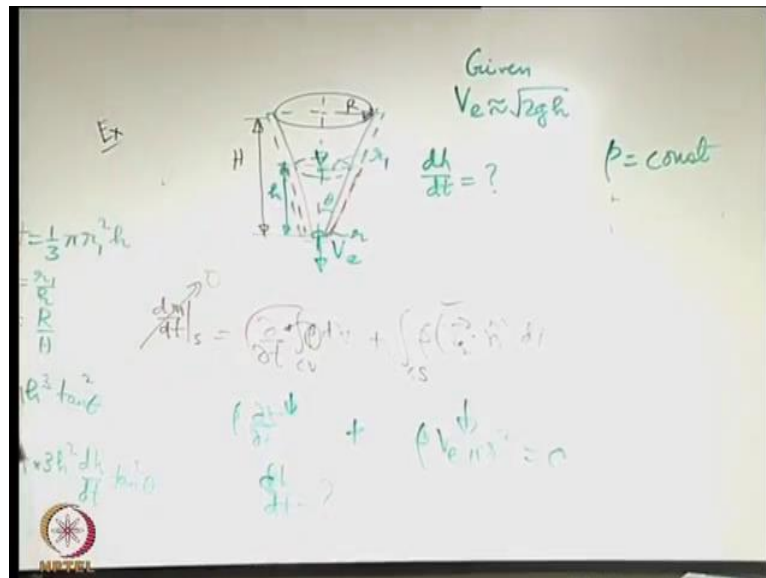 Given
Ve ≈ √2gh
Ex
R
H
h
r1
θ
r
Ve
dh/dt = ?
ρ = const
t = 1/3 π r1² h
= r1/h
= R/H
h³ tan²θ
× 3h² dh/dt tan²θ
dm/dt|s = ∂/∂t ∫ρ d + ∫ρ
CV
CS
0
ρ + ρ Ve π r² = 0
dh/dt = ?
NPTEL